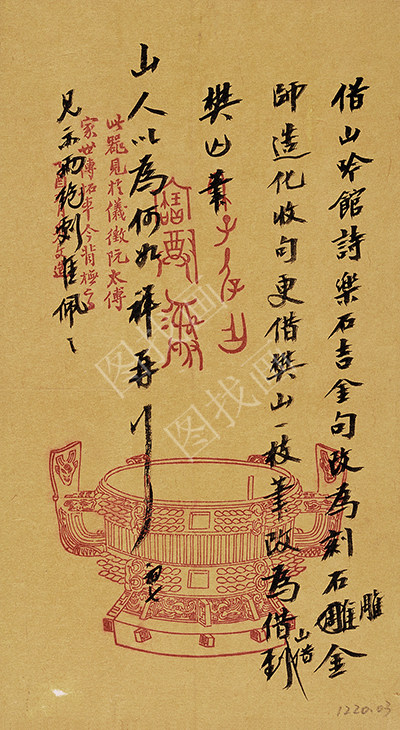 借山吟館詩樂石吉金句改為刻石雕金
雕
師造化收句更借樊山一枝筆改為借到
山借
樊山筆
山人以為何如祥再行
初七
見示
刻
佩〻
此器見於儀徵阮太傅
家世傳拓本今背橅
1220.03
图找画